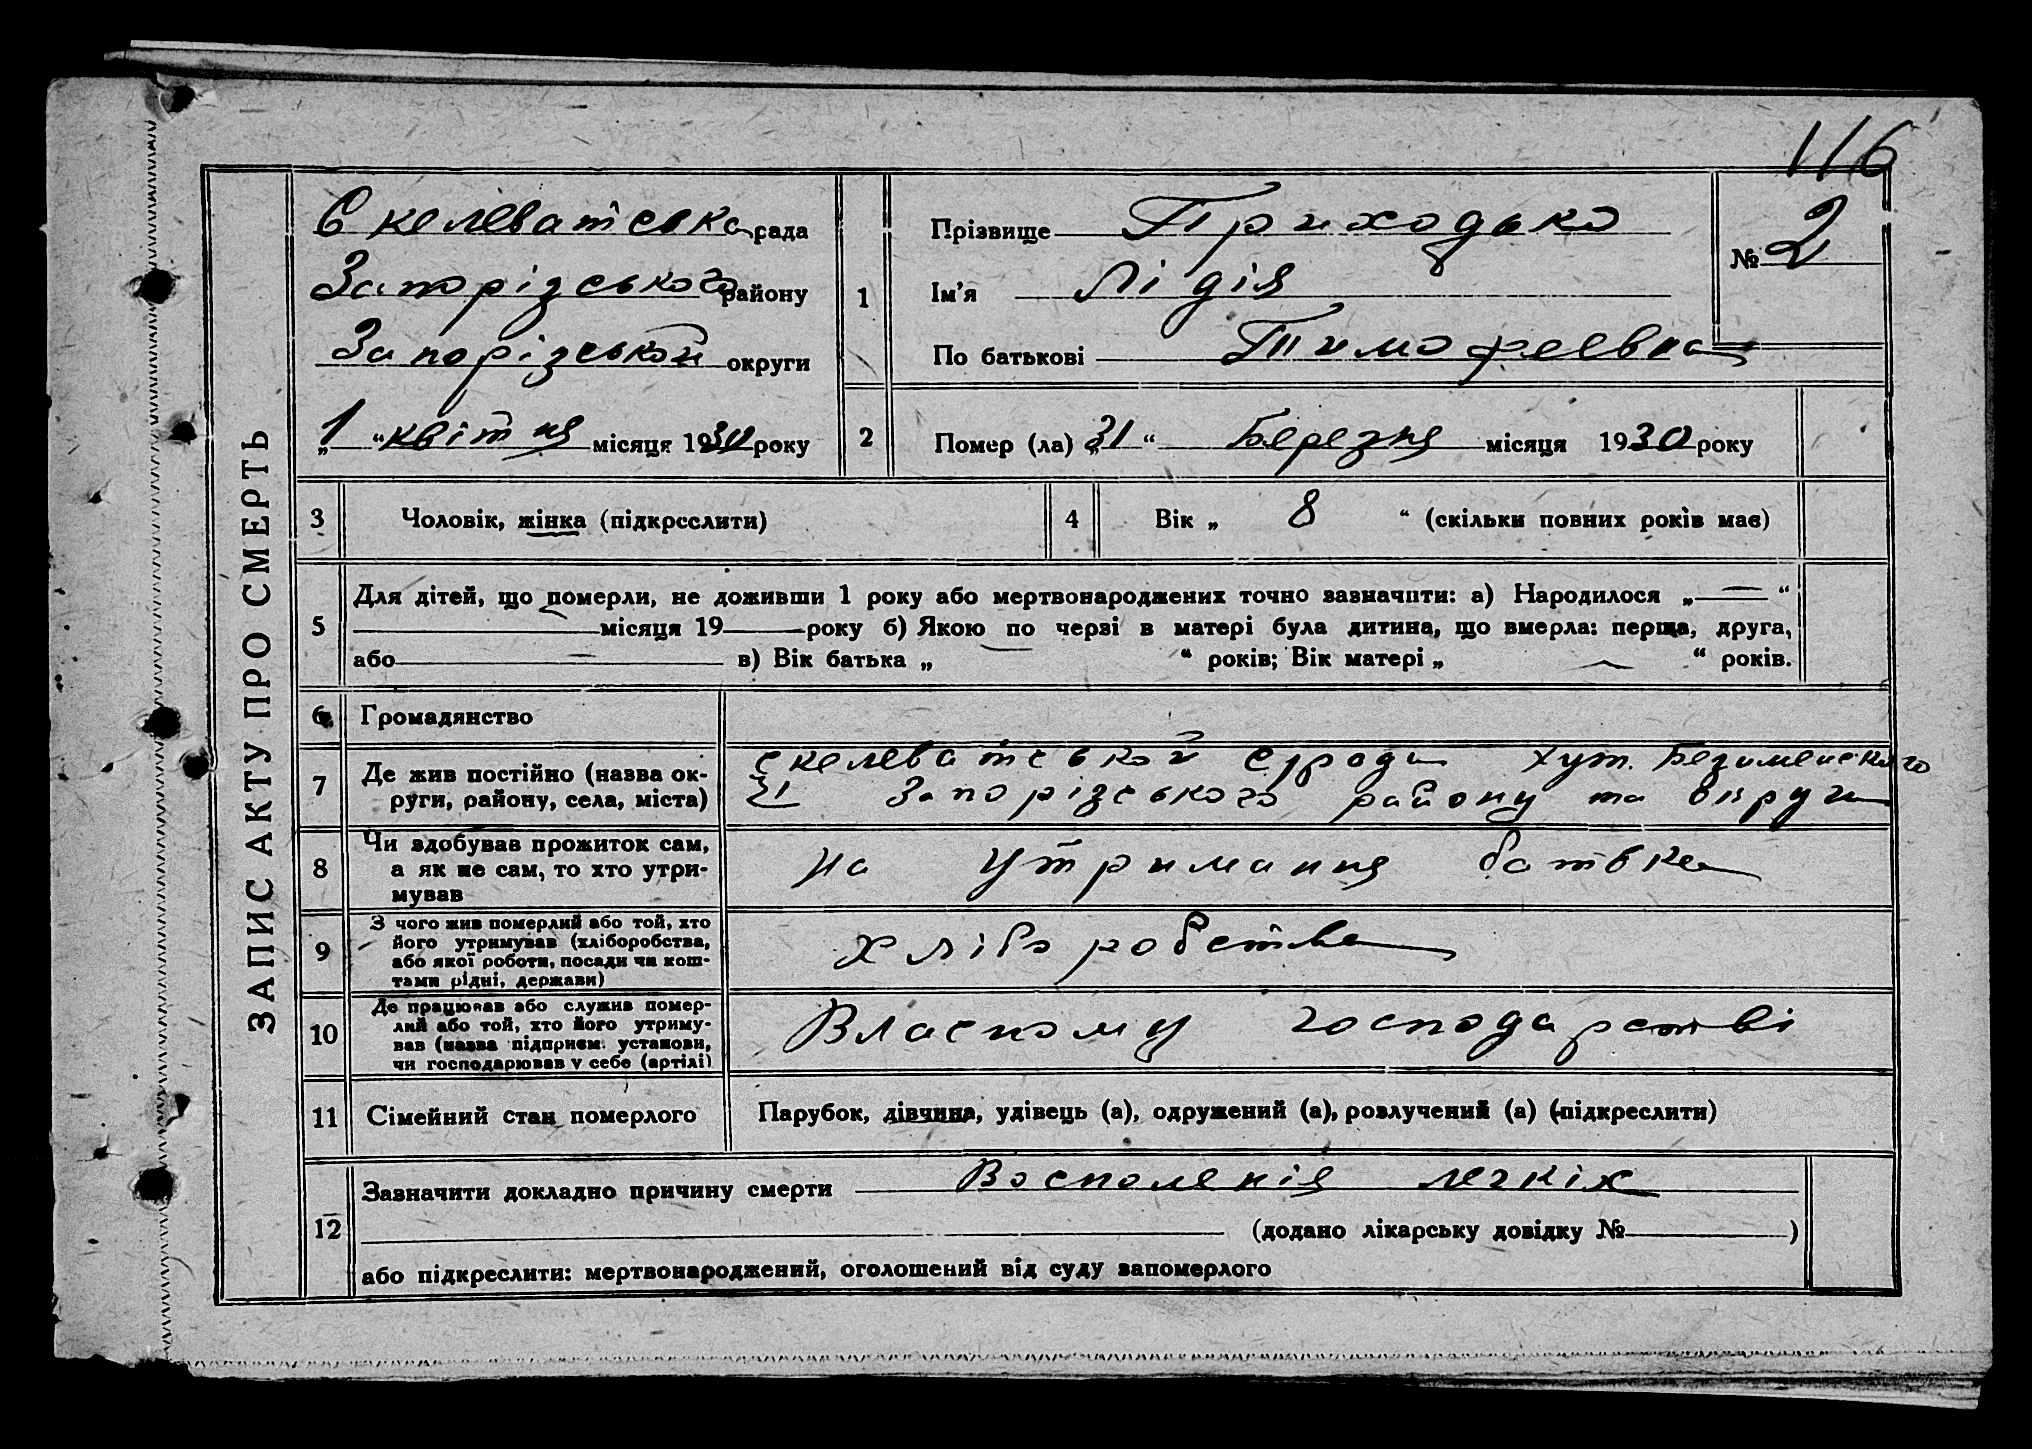 116
ЗАПИС АКТУ ПРО СМЕРТЬ
Скелеватська рада
Запорізського району
Запорізской округи
„1“ квітня місяця 1930 року
1
Прізвище Приходько
Ім'я Лідія
По батькові Тимофеевна
№ 2
2
Помер (ла) „31“ Березня місяця 1930 року
3 Чоловік, жінка (підкреслити)
4 Вік „ 8 “ (скільки повних років має)
5
Для дітей, що померли, не доживши 1 року або мертвонароджених точно зазначити: а) Народилося „—“
місяця 19 року б) Якою по черзі в матері була дитина, що вмерла: перша, друга,
або в) Вік батька „ “ років; Вік матері „ “ років.
6 Громадянство
7
Де жив постійно (назва ок-
руги, району, села, міста)
Скелеватської с/ради хут. Безименского
Запорізського району та округи
8
Чи здобував прожиток сам,
а як не сам, то хто утри-
мував
на утримання батька
9
З чого жив померлий або той, хто
його утримував (хліборобства,
або якої роботи, посади чи кош-
тами рідні, держави)
хліборобства
10
Де працював або служив помер-
лий або той, хто його утриму-
вав (назва підприєм. установи,
чи господарював у себе (артілі)
Власному господарстві
11 Сімейний стан померлого
Парубок, дівчина, удівець (а), одружений (а), розлучений (а) (підкреслити)
12
Зазначити докладно причину смерти Восполенія легкіх
(додано лікарську довідку № )
або підкреслити: мертвонароджений, оголошений від суду запомерлого